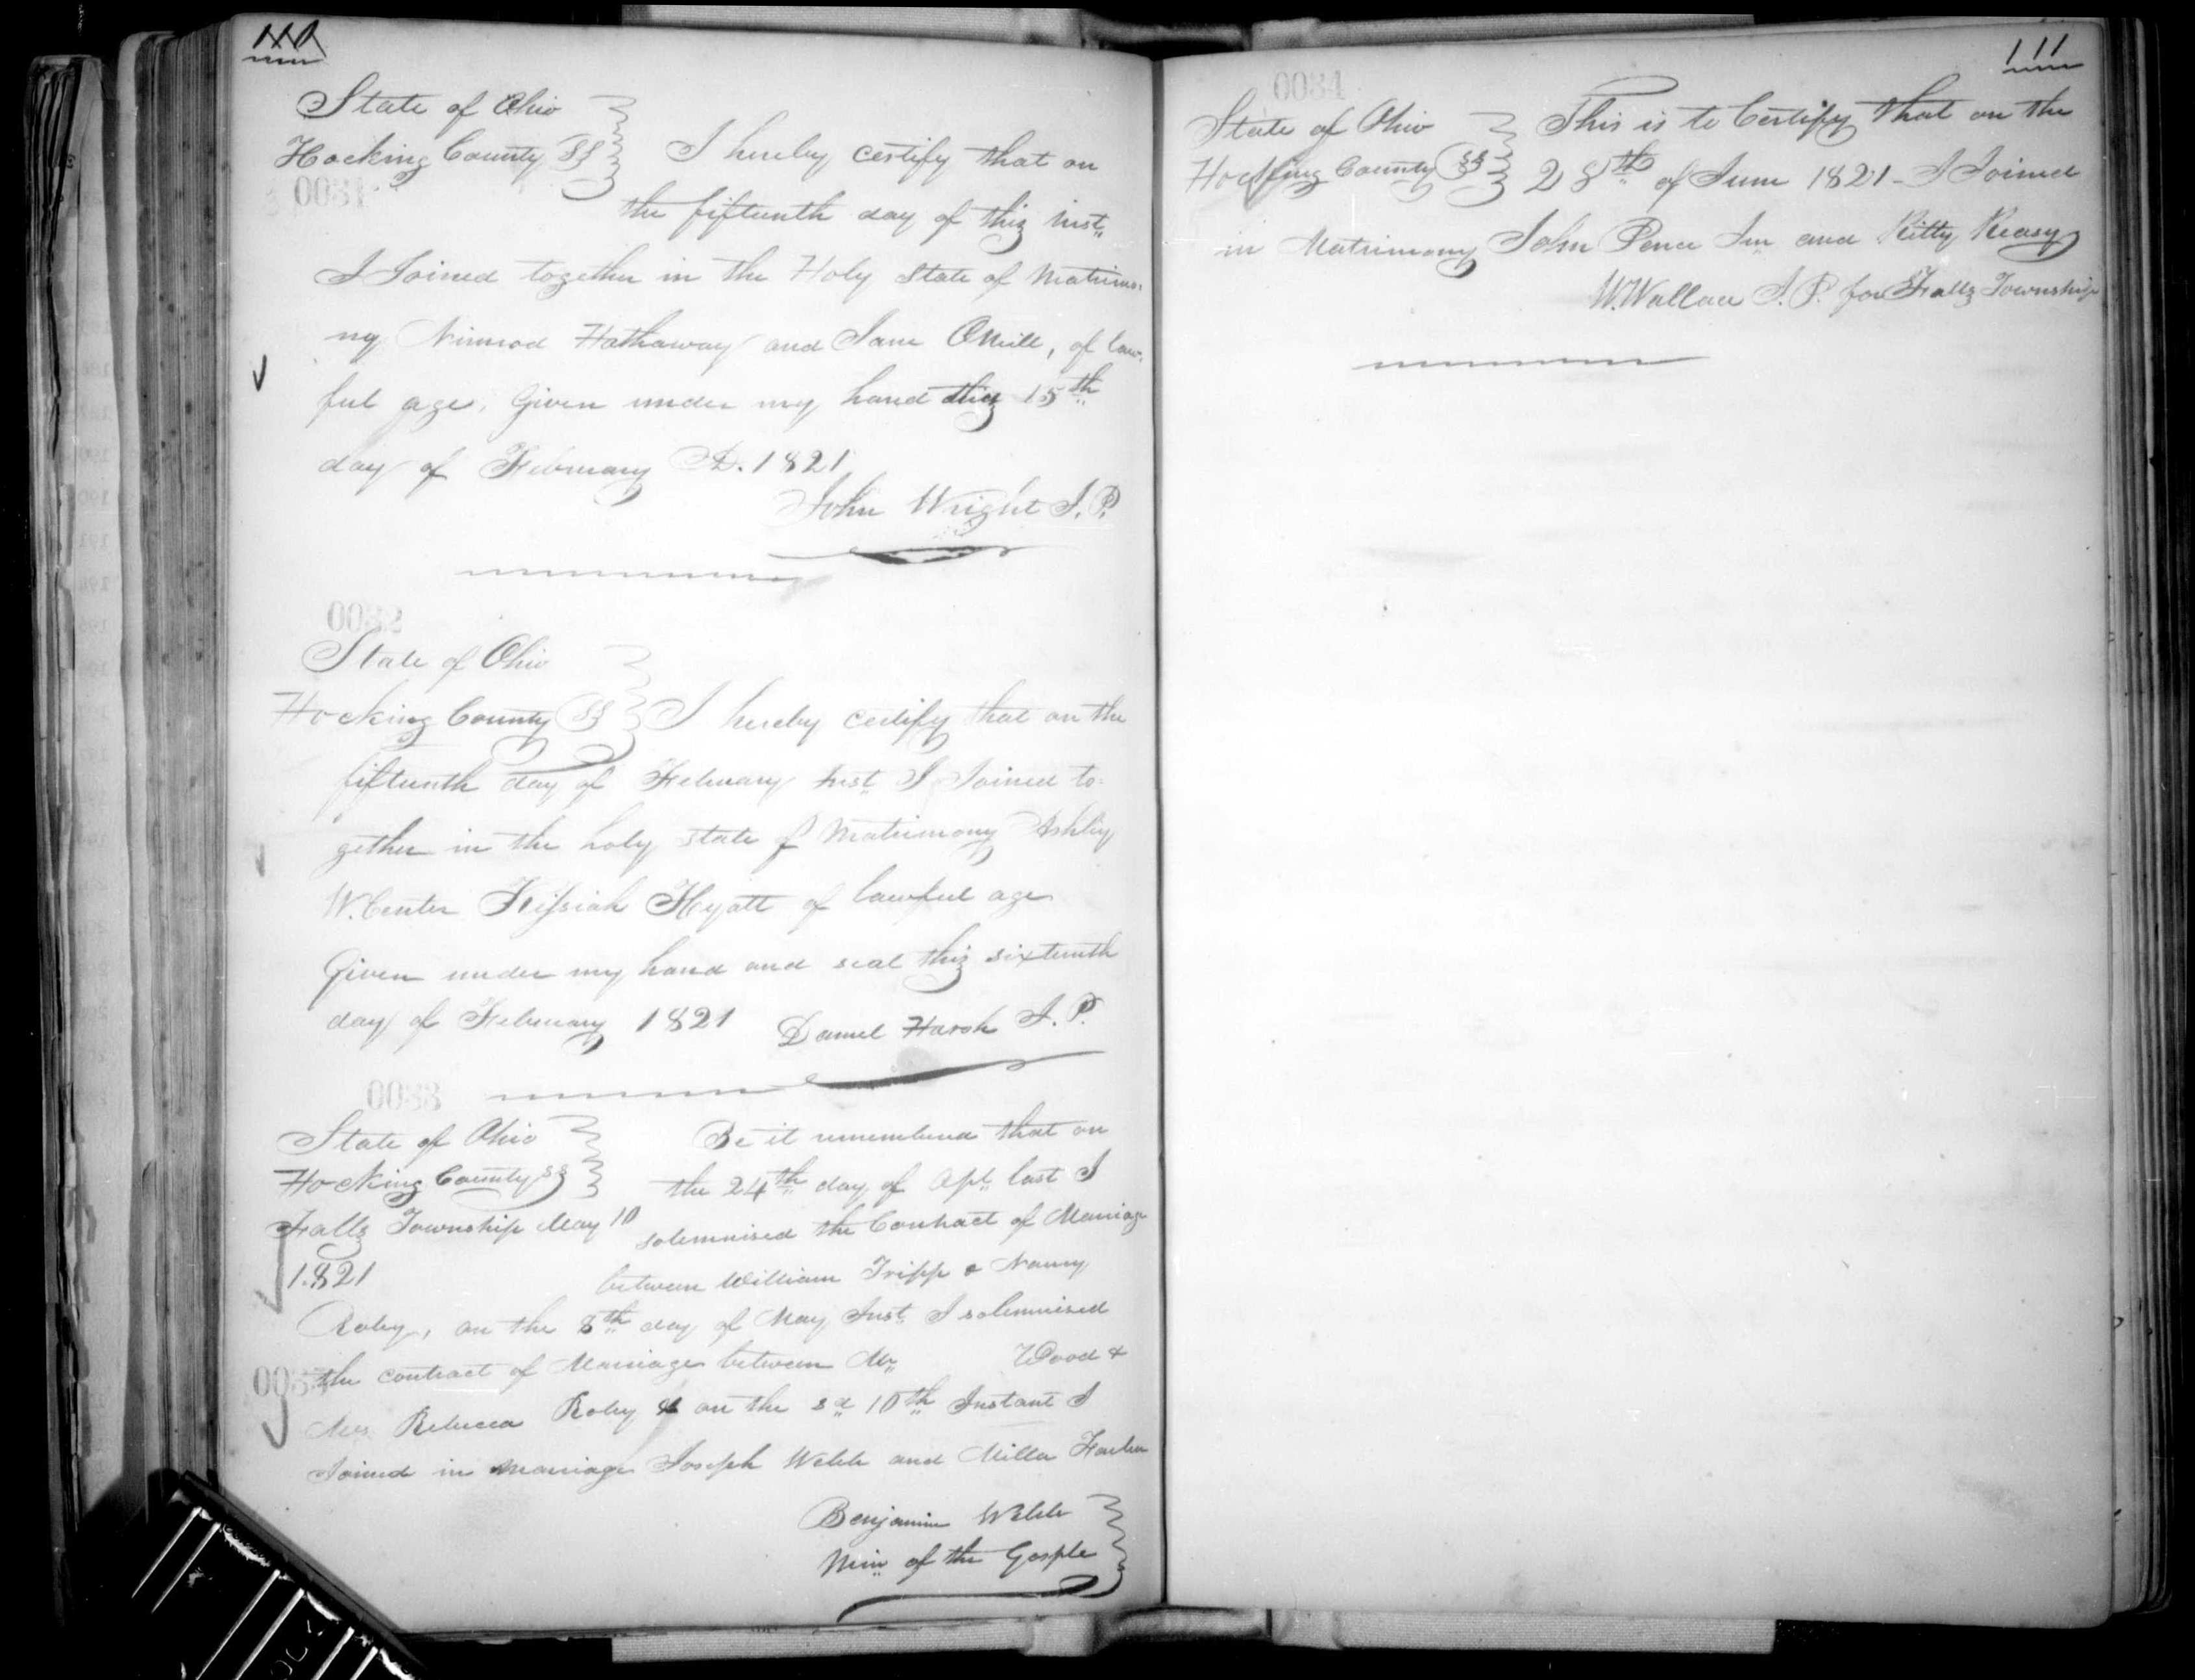 110
State of Ohio
Hocking County SS I hereby certify that on
0031
the fifteenth day of this inst.
I Joined together in the Holy State of Matrimo-
ny Nimrod Hathaway and Jane ONeill, of law-
ful age, Given under my hand this 15th
day of February AD. 1821
John Wright J. P.
0032
State of Ohio
Hocking County SS I hereby certify that on the
fifteenth day of February Inst I Joined to-
gether in the holy state of Matrimony Ashley
W. Center Kissiah Hyatt of lawful age
Given under my hand and seal this sixteenth
day of February 1821 Daniel Harsh J. P.
0033
State of Ohio Be it remembered that on
Hocking County SS the 24th day of Apl. last I
Falls Township May 10 solemnised the Contract of Marriage
1821 between William Tripp & Nancy
Roby, on the 8th day of May Inst. I solemnised
the contract of Marriage between Mr. Wood &
Rebecca Roby & on the sd 10th Instant I
Joined in Marriage Joseph Webb and Milla
Benjamin Webb
Min of the Gosple
111
0034
State of Ohio This is to Certify that on the
Hocking County SS 28th of June 1821 - I Joined
in Matrimony John Pence Jun and Kitty Keasy
W. Wallace J. P. for Falls Township